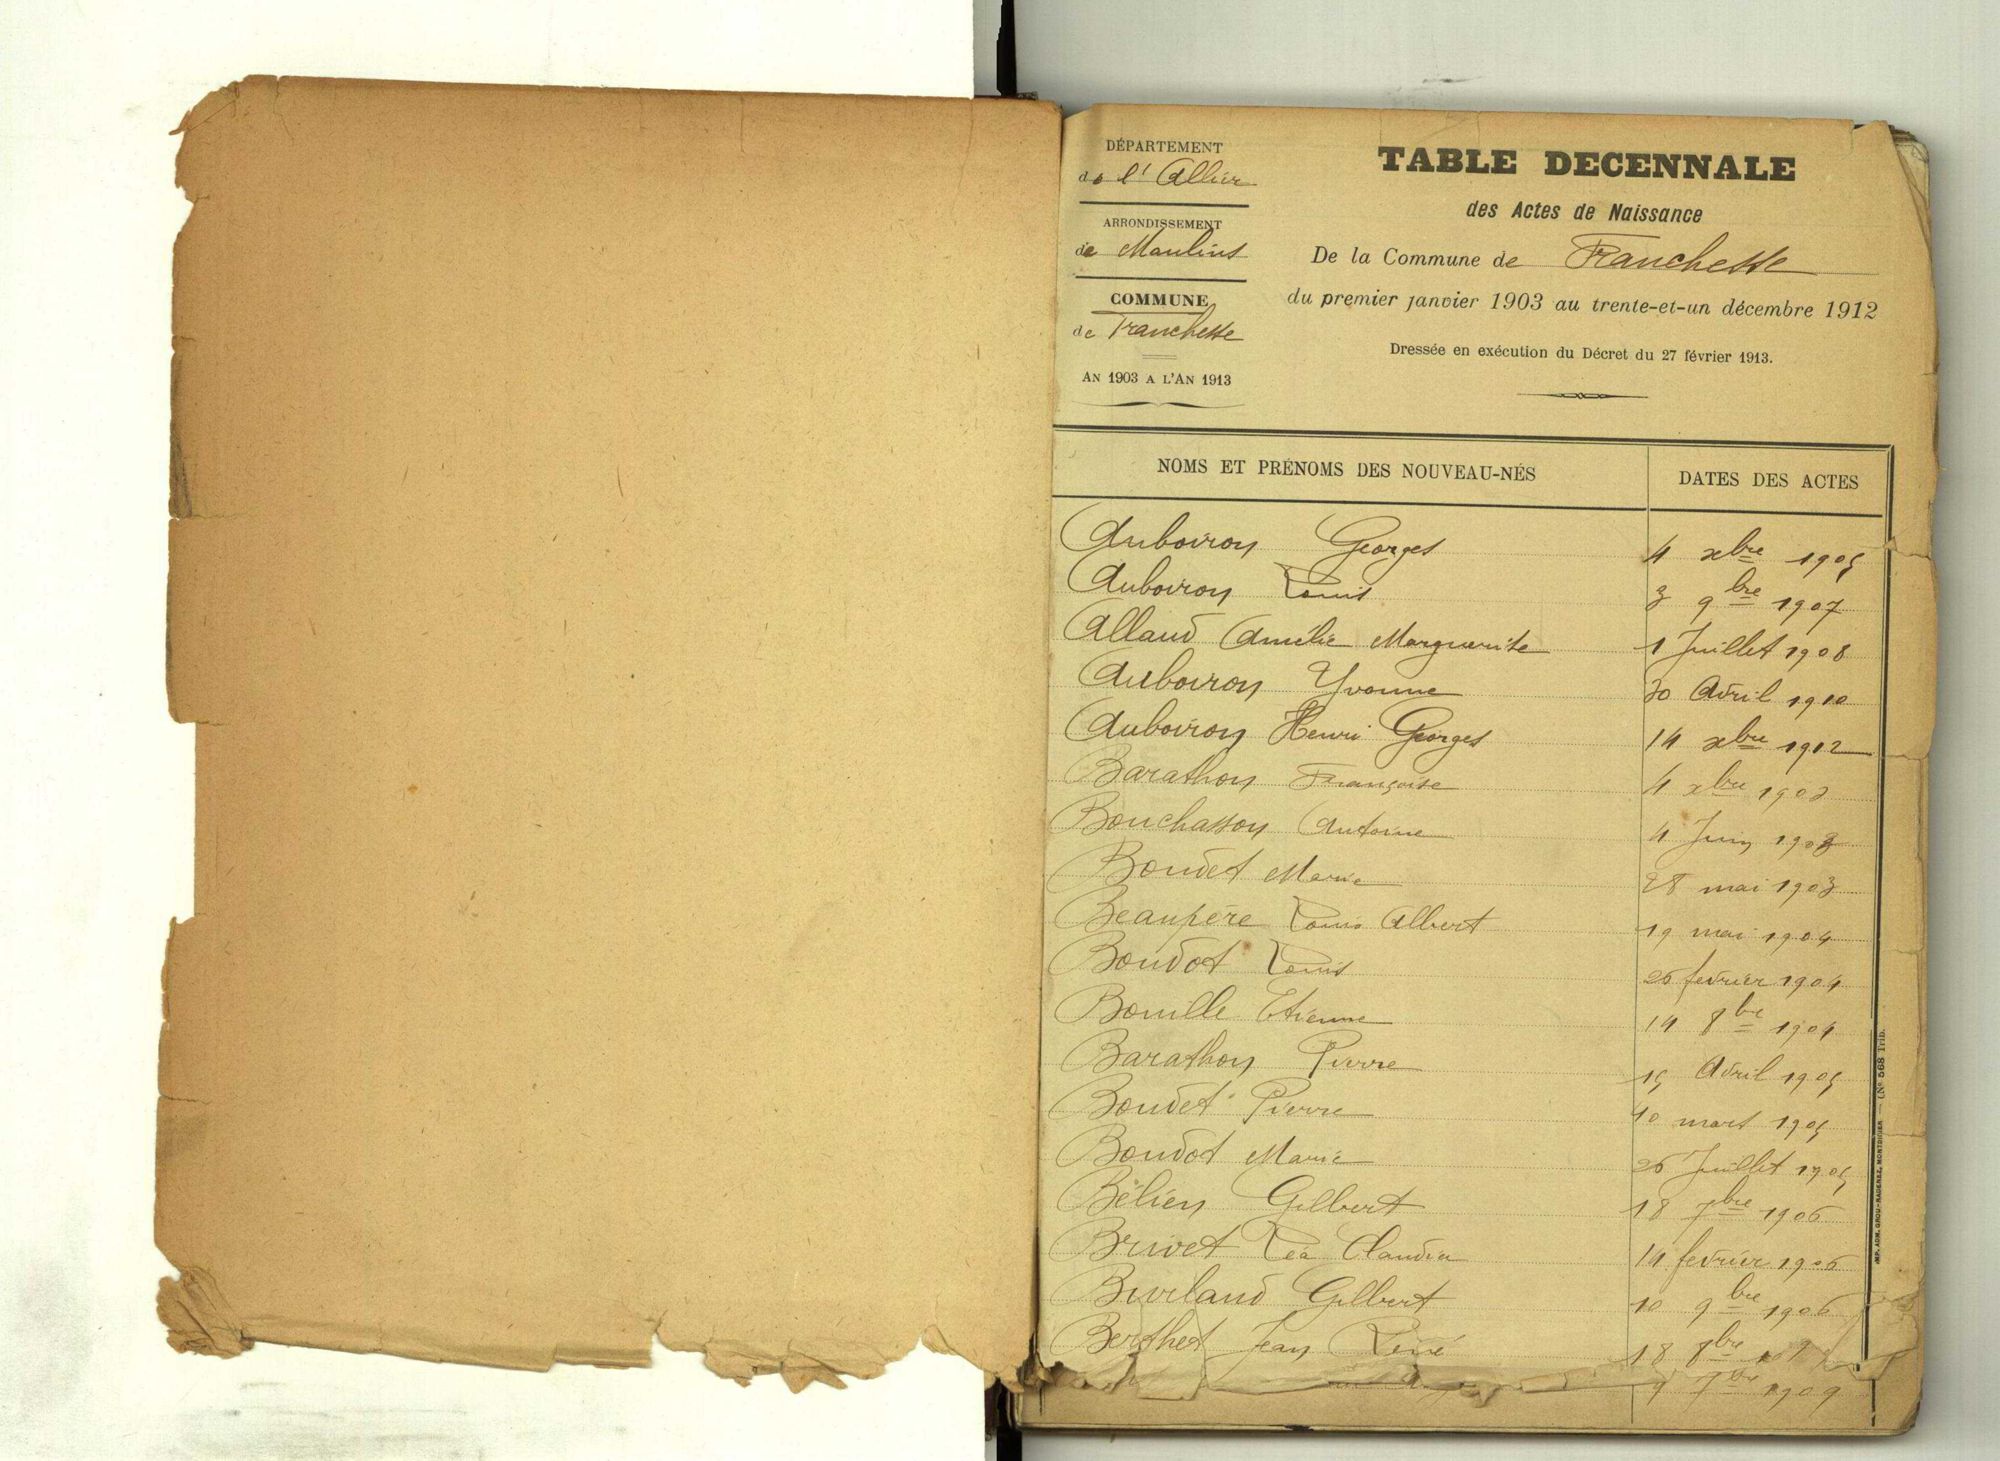 DÉPARTEMENT
de l'Allier
ARRONDISSEMENT
de Moulins
COMMUNE
de Franchesse
AN 1903 A L'AN 1913
TABLE DECENNALE
des Actes de Naissance
De la Commune de Franchesse
du premier janvier 1903 au trente-et-un décembre 1912
Dressée en exécution du Décret du 27 février 1913.
NOMS ET PRÉNOMS DES NOUVEAU-NÉS DATES DES ACTES
Auboiron Georges 4 xbre 1905
Auboiron Louis 3 9bre 1907
Allaud Amélie Marguerite 1 Juillet 1908
Auboiron Yvonne 30 Avril 1910
Auboiron Henri Georges 14 xbre 1912
Barathon Françoise 4 xbre 1903
Bouchasson Antoine 4 Juin 1903
Boudet Marie 28 mai 1903
Beaupère Louis Albert 19 mai 1904
Boudot Louis 26 fevrier 1904
Bouille Etienne 14 8bre 1904
Barathon Pierre 15 Avril 1905
Boudet Pierre 10 mars 1905
Boudot Marie 26 Juillet 1905
Bélien Gilbert 18 7bre 1906
Brivet Léa Claudia 14 fevrier 1906
Burlaud Gilbert 10 9bre 1906
Berthet Jean René 18 8bre
9 7bre 1909
IMP. ADM. GROU-RADENEZ, MONTDIDIER — (N° 568 Trib.